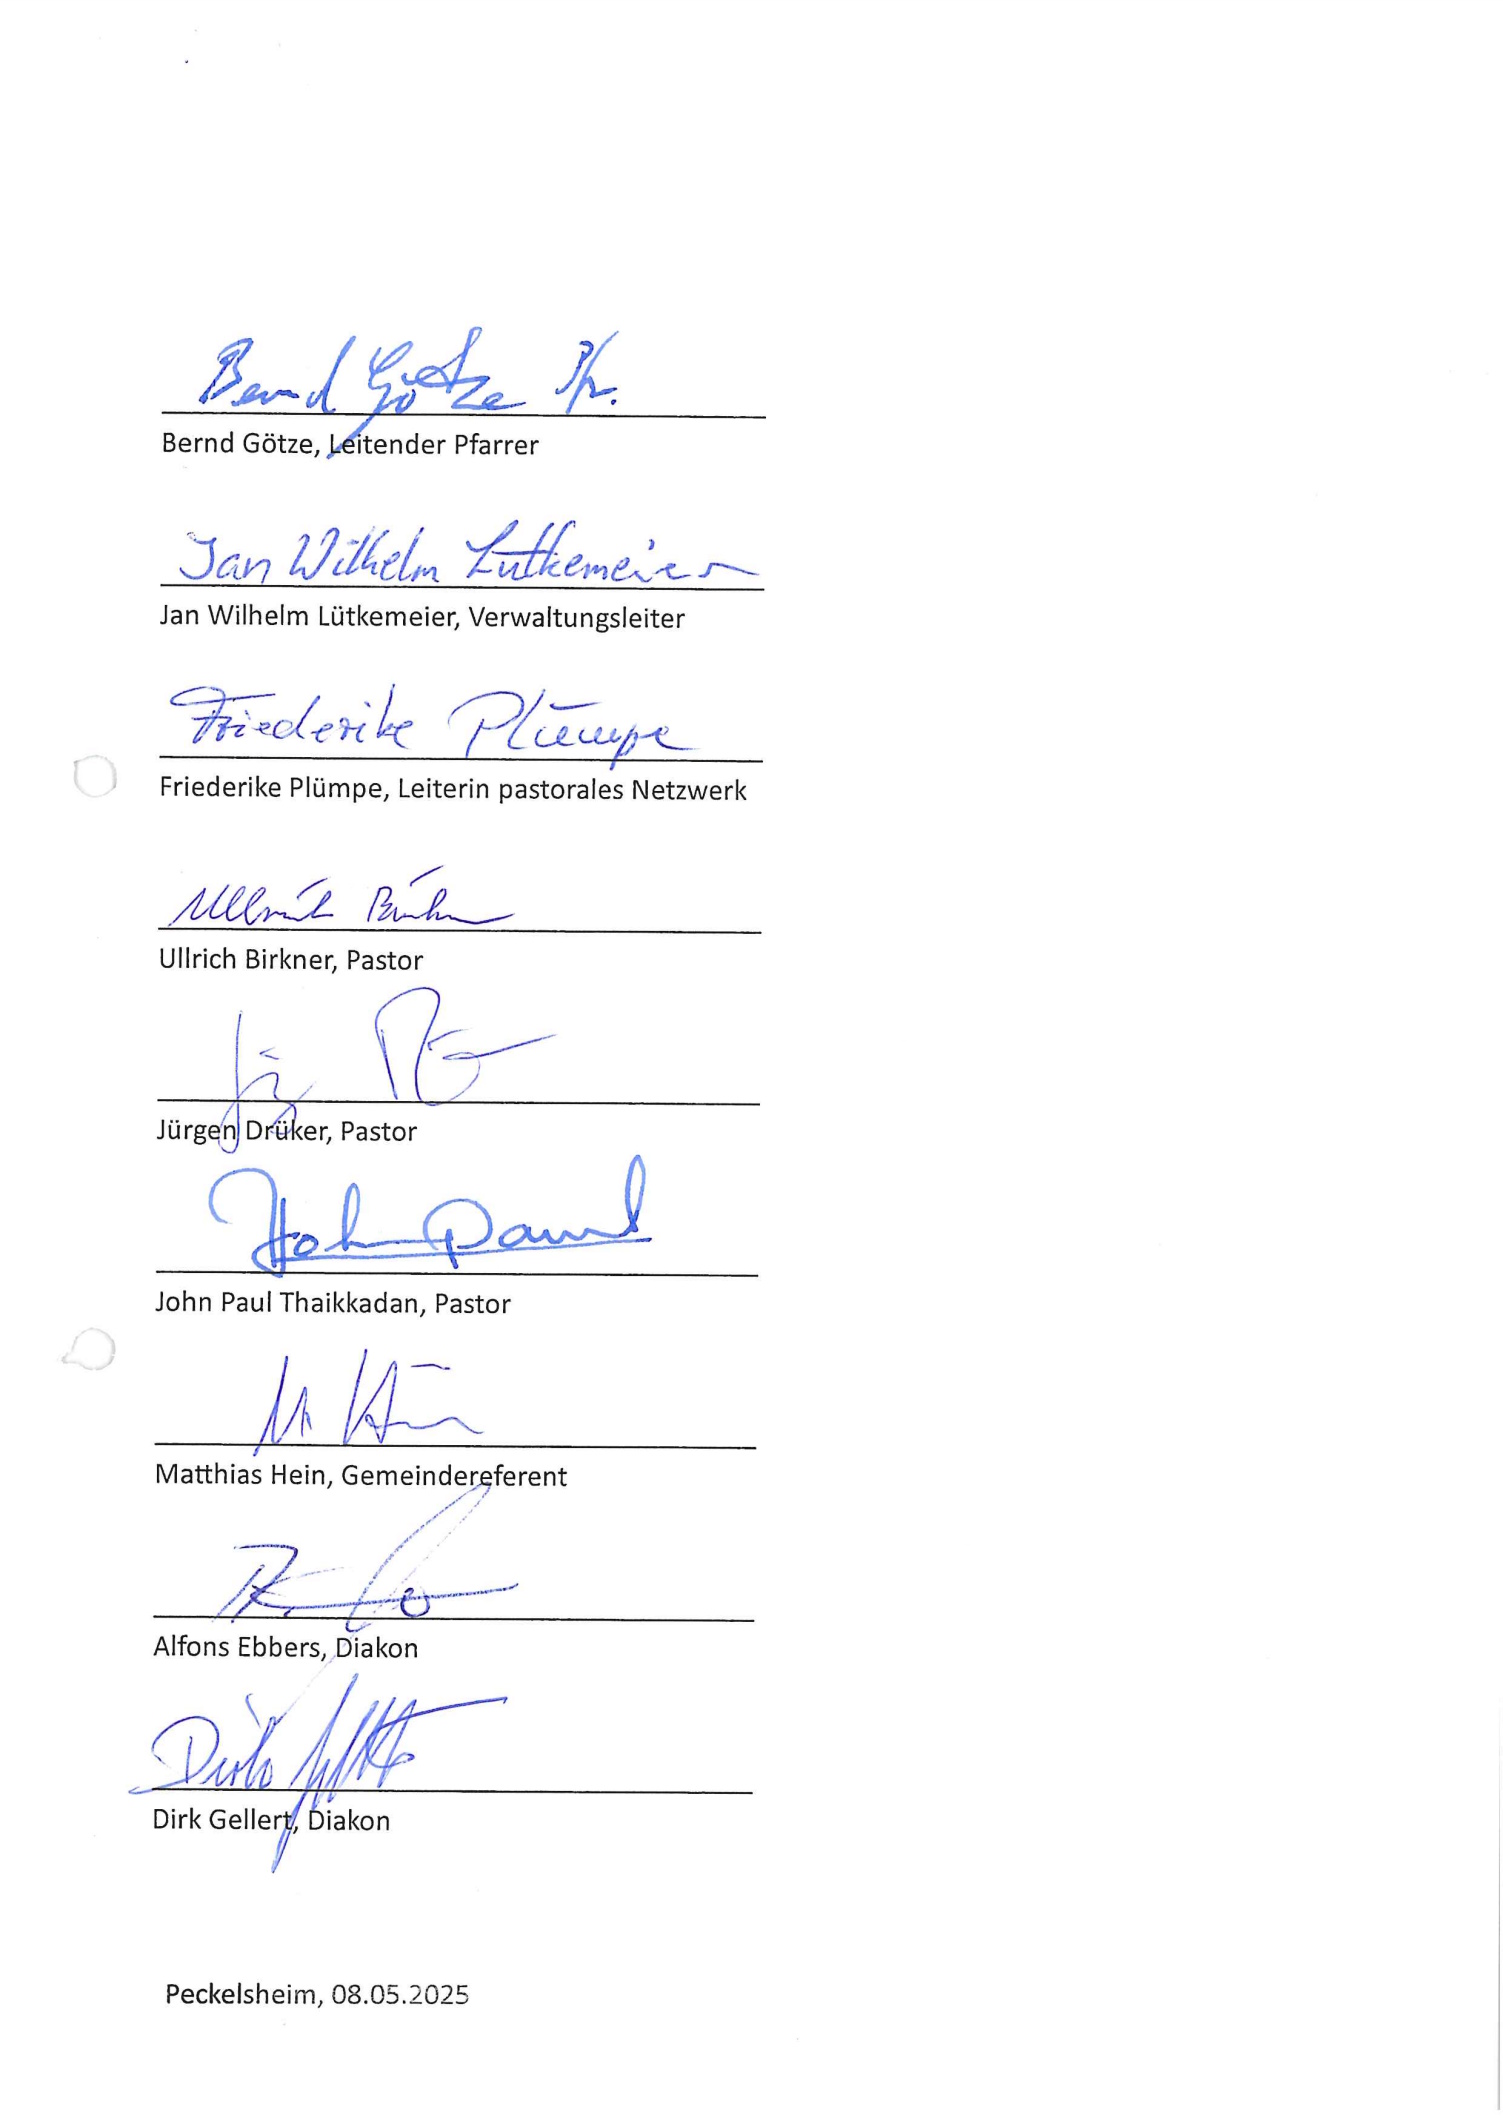 Bernd Götze Pfr.
Bernd Götze, Leitender Pfarrer
Jan Wilhelm Lütkemeier
Jan Wilhelm Lütkemeier, Verwaltungsleiter
Friederike Plümpe
Friederike Plümpe, Leiterin pastorales Netzwerk
Ullrich Birkner, Pastor
Jürgen Drüker, Pastor
John Paul
John Paul Thaikkadan, Pastor
Matthias Hein, Gemeindereferent
Alfons Ebbers, Diakon
Dirk
Dirk Gellert, Diakon
Peckelsheim, 08.05.2025